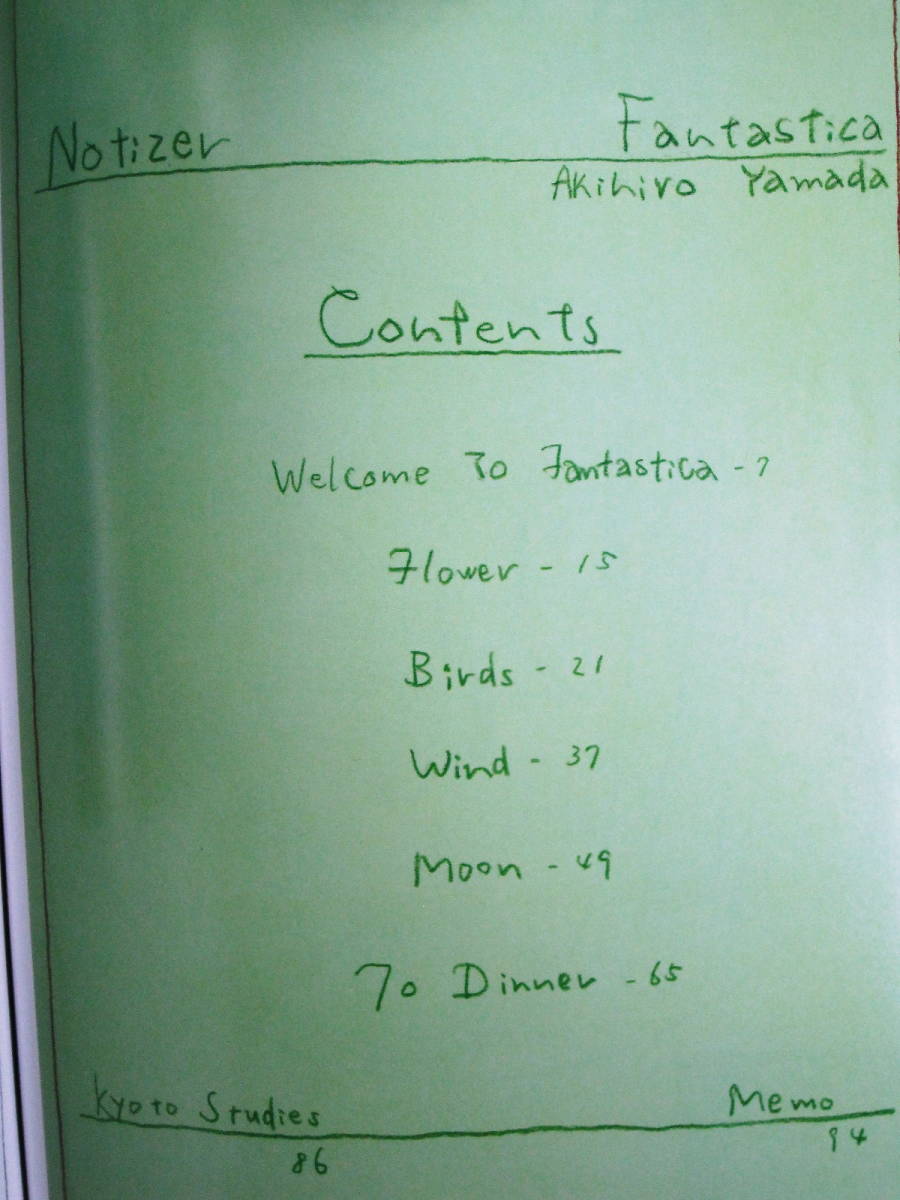 Notizer Fantastica
Akihiro Yamada
Contents
Welcome To Fantastica - 7
Flower - 15
Birds - 21
Wind - 37
Moon - 49
To Dinner - 65
Kyoto Studies Memo
86 94